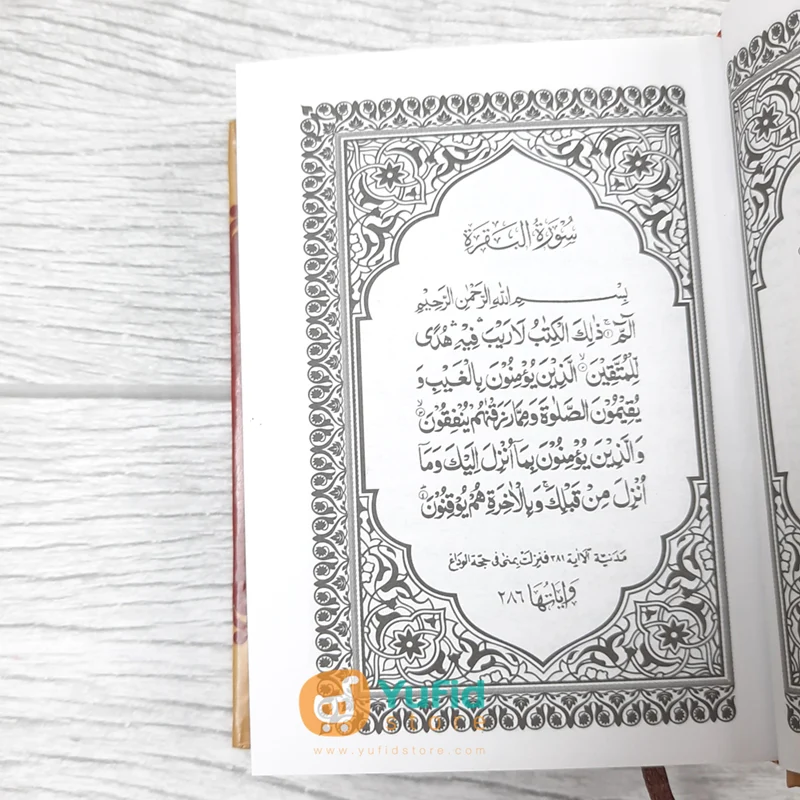 سُورَةُ الْبَقَرَةِ
بِسْمِ اللّٰهِ الرَّحْمٰنِ الرَّحِيْمِ
الٓمّٓ ۚ ١ ذٰلِكَ الْكِتٰبُ لَارَيْبَ ۛ فِيْهِ ۛ هُدًى
لِّلْمُتَّقِيْنَ ۙ ٢ الَّذِيْنَ يُؤْمِنُوْنَ بِالْغَيْبِ وَ
يُقِيْمُوْنَ الصَّلٰوةَ وَمِمَّا رَزَقْنٰهُمْ يُنْفِقُوْنَ ۙ ٣
وَالَّذِيْنَ يُؤْمِنُوْنَ بِمَآ اُنْزِلَ اِلَيْكَ وَمَآ
اُنْزِلَ مِنْ قَبْلِكَ ۚ وَبِالْاٰخِرَةِ هُمْ يُوْقِنُوْنَ ۗ ٤
مدنية الااية ٢٨١ فنزلت بمنى في حجة الوداع
وَاٰيَاتُهَا ٢٨٦
YuFid
store
www.yufidstore.com